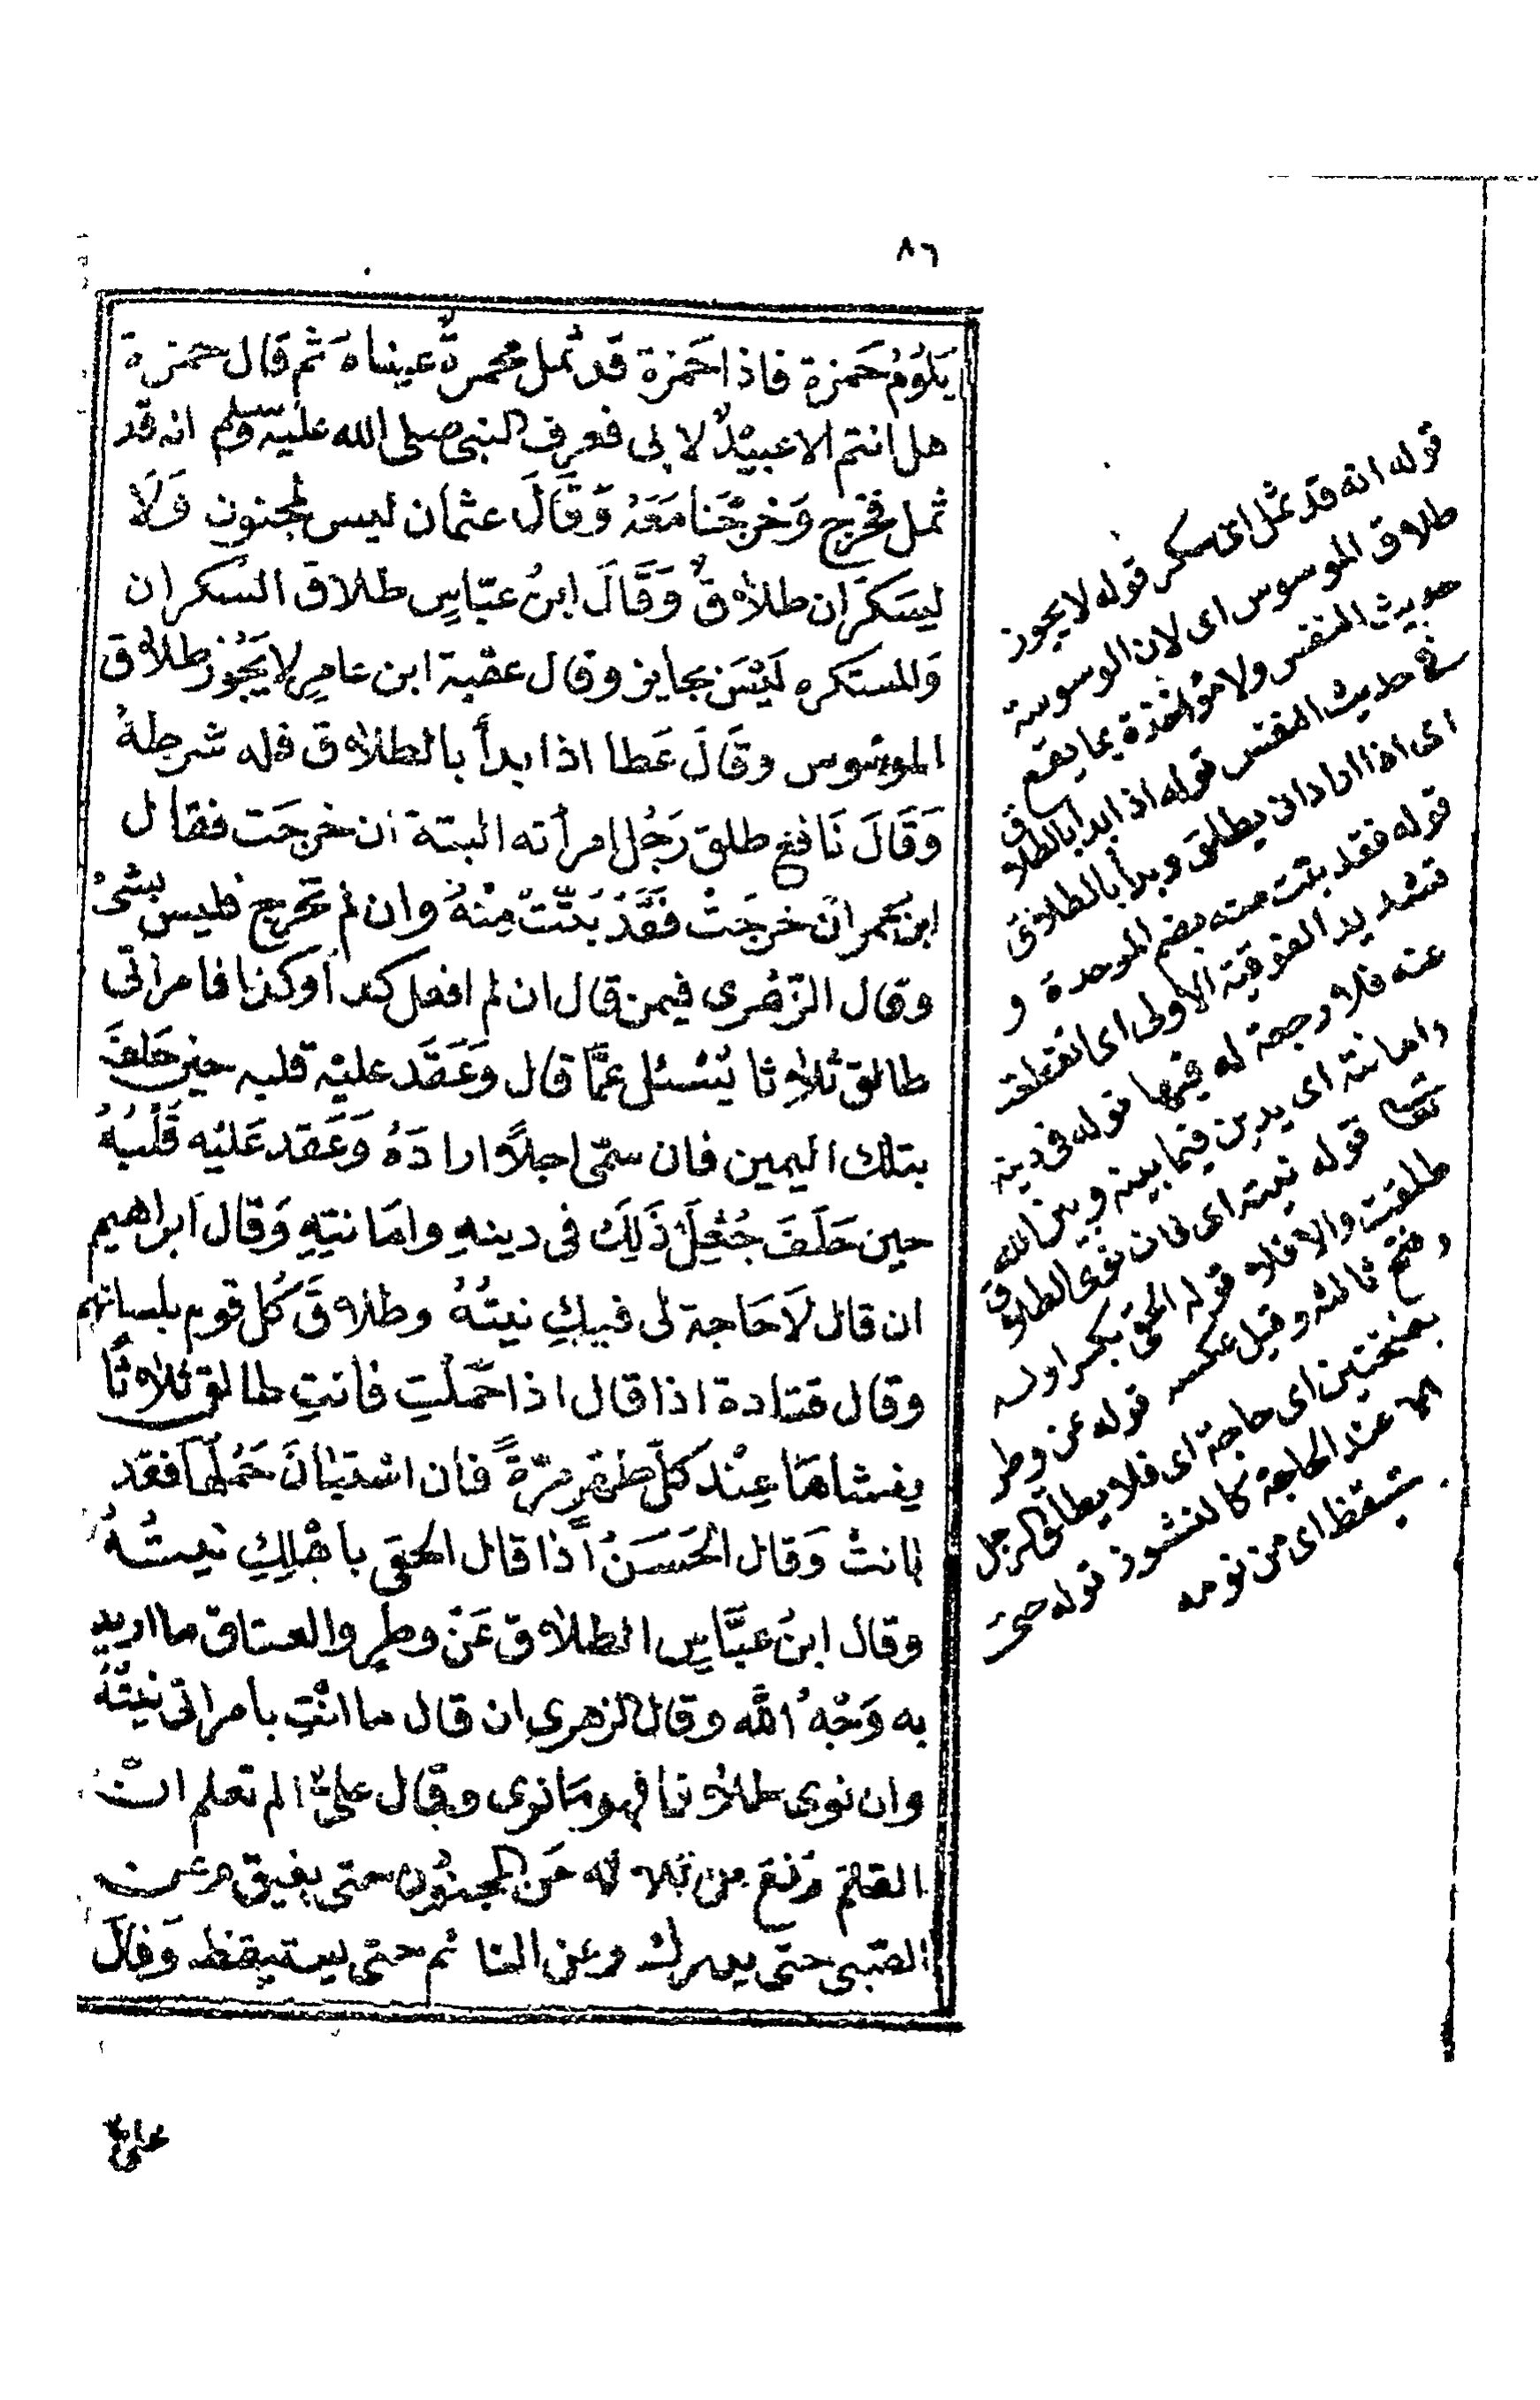 ٨٦
يَلُومُ حَمزة فاذا حَمْزة قد ثمل محمرةٌ عيناه ثم قال حمزة
هل انتم الا عبيدٌ لابى فعرف النبى صلى الله عليه وسلم انه قد
ثمل فخرج وَخرجْنا مَعَهُ وَقَالَ عثمان ليس لمجنون وَلَا
لِسَكرَان طلاقٌ وَقَالَ ابنُ عبّاسٍ طلاق السكران
وَالمستكره لَيْسَ بجايز وقال عقبة ابن عامرٍ لا يَجُوز طلاق
الموسْوس وقَالَ عَطا اذا بدأ بالطلاق فله شرطهُ
وَقَالَ نَافع طلق رَجُل امرأته البتة ان خرجَت فقال
ابن عُمر ان خرجَتْ فَقَدْ بَتّتْ مِنْهُ وان لم تخرج فليس بشئ
وقال الزّهرى فيمن قال ان لم افعل كذا وكذا فامراتى
طالق ثلاثا يُسْئل عمّا قال وَعَقَد عليْه قلبه حين حَلفَ
بتلك اليمين فان سمّى اجلًا ارادَهُ وَعَقد عَليْه قَلْبُهُ
حين حَلَفَ جُعِلَ ذَلِكَ فى دينهِ وامَانتِهِ وَقال ابراهيم
ان قال لَا حَاجة لى فيكِ نيتُهُ وطلاقَ كُل قوم بلسانهم
وقال قتادة اذا قال اذا حَمَلْتِ فانتِ طالق ثلاثًا
يغشاهَا عِنْد كلّ طهرٍ مرّةً فان اسْتبَانَ حَمْلُهَا فقد
بانتْ وَقال الحَسَنُ اذا قال الحقى باهْلِكِ نيتُهُ
وقال ابنُ عبَّاسٍ الطلاق عَنْ وطرٍ والعتاق ما اريد
به وَجْهُ الله وقال الزهرى ان قال ما انْتِ بامراتى نيّتُهُ
وان نوى طلاقا فهو مَا نوى وقال علىّ الم تعلم انّ
القلمَ رُفعَ عن ثلاثة عَن المجنُون حتى يفيق وعن
الصّبى حتى يدرك وعن النائم حتى يستيقظ وَقالَ
علىّ
قوله انه قد ثمل اى سكر قوله لا يجوز
طلاق الموسوس اى لان الوسوسة
حديث النفس ولا مؤاخذة بما يقع
فى حديث النفس قوله اذا بدا بالطلاق
اى اذا اراد ان يطلق وبدأ بالطلاق
قوله فقد بتت منه بضم الموحدة و
تشديد الفوقية الاولى اى انقطعت
عنه فلا رجعة له فيها قوله فى دينه
وامانته اى يدين فيما بينه وبين الله
تعالى قوله نيته اى فان نوى الطلاق
طلقت والا فلا قوله الحقى بكسر اوله
وفتح ثالثه وقيل عكسه قوله عن وطر
بفتحتين اى حاجة اى فلا يطلق الرجل
الا عند الحاجة كالنشوز قوله حتى
يستيقظ اى من نومه